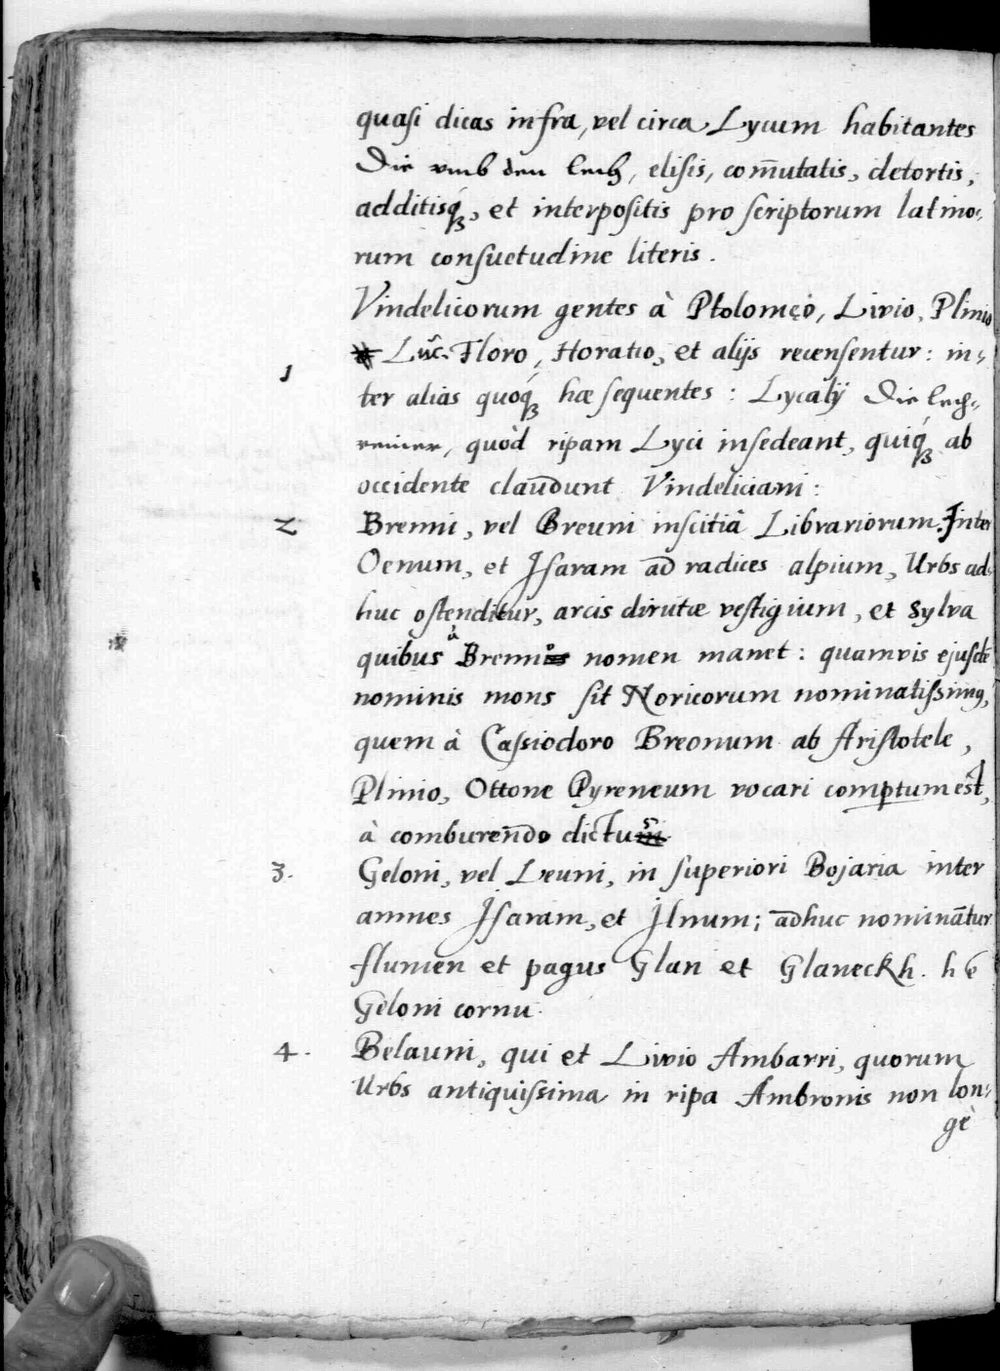 quasi dicas infra, vel circa Lycum habitantes
Die vmb den Lech, elisis, com̄utatis, detortis,
additisq́ꝫ, et interpositis pro scriptorum latino-
rum consuetudine literis.
Vindelicorum gentes à Ptolomęo, Livio, Plinio
Luc. Floro, Horatio, et alijs recensentur: in-
1
ter alias quoq́ꝫ hæ sequentes: Lycatÿ Die Lech-
reiner, quòd ripam Lyci insedeant, quiq́ꝫ ab
occidente claudunt Vindeliciam:
2 Brenni, vel Breuni inscitiâ Librariorum. Inter
Oenum, et Isaram ad radices alpium, Urbs ad-
huc ostenditur, arcis dirutæ vestigium, et Sylva
quibus à Brennis nomen manet: quamvis ejusdē
nominis mons sit Noricorum nominatissimus,
quem à Cassiodoro Breonum ab Aristotele,
Plinio, Ottone Pyreneum vocari comptum est,
à comburendo dictus
3. Geloni, vel Leuni, in superiori Bojaria inter
amnes Isaram, et Ilnum; adhuc nominātur
flumen et pagus Glan et Glaneckh. he
Geloni cornu.
4. Belauni, qui et Livio Ambarri, quorum
Urbs antiquissima in ripa Ambronis non lon-
gè